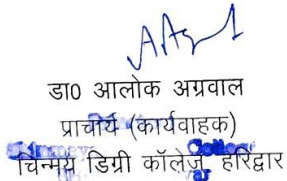 डा0 आलोक अग्रवाल
प्राचार्य (कार्यवाहक)
चिन्मय डिग्री कॉलेज, हरिद्वार